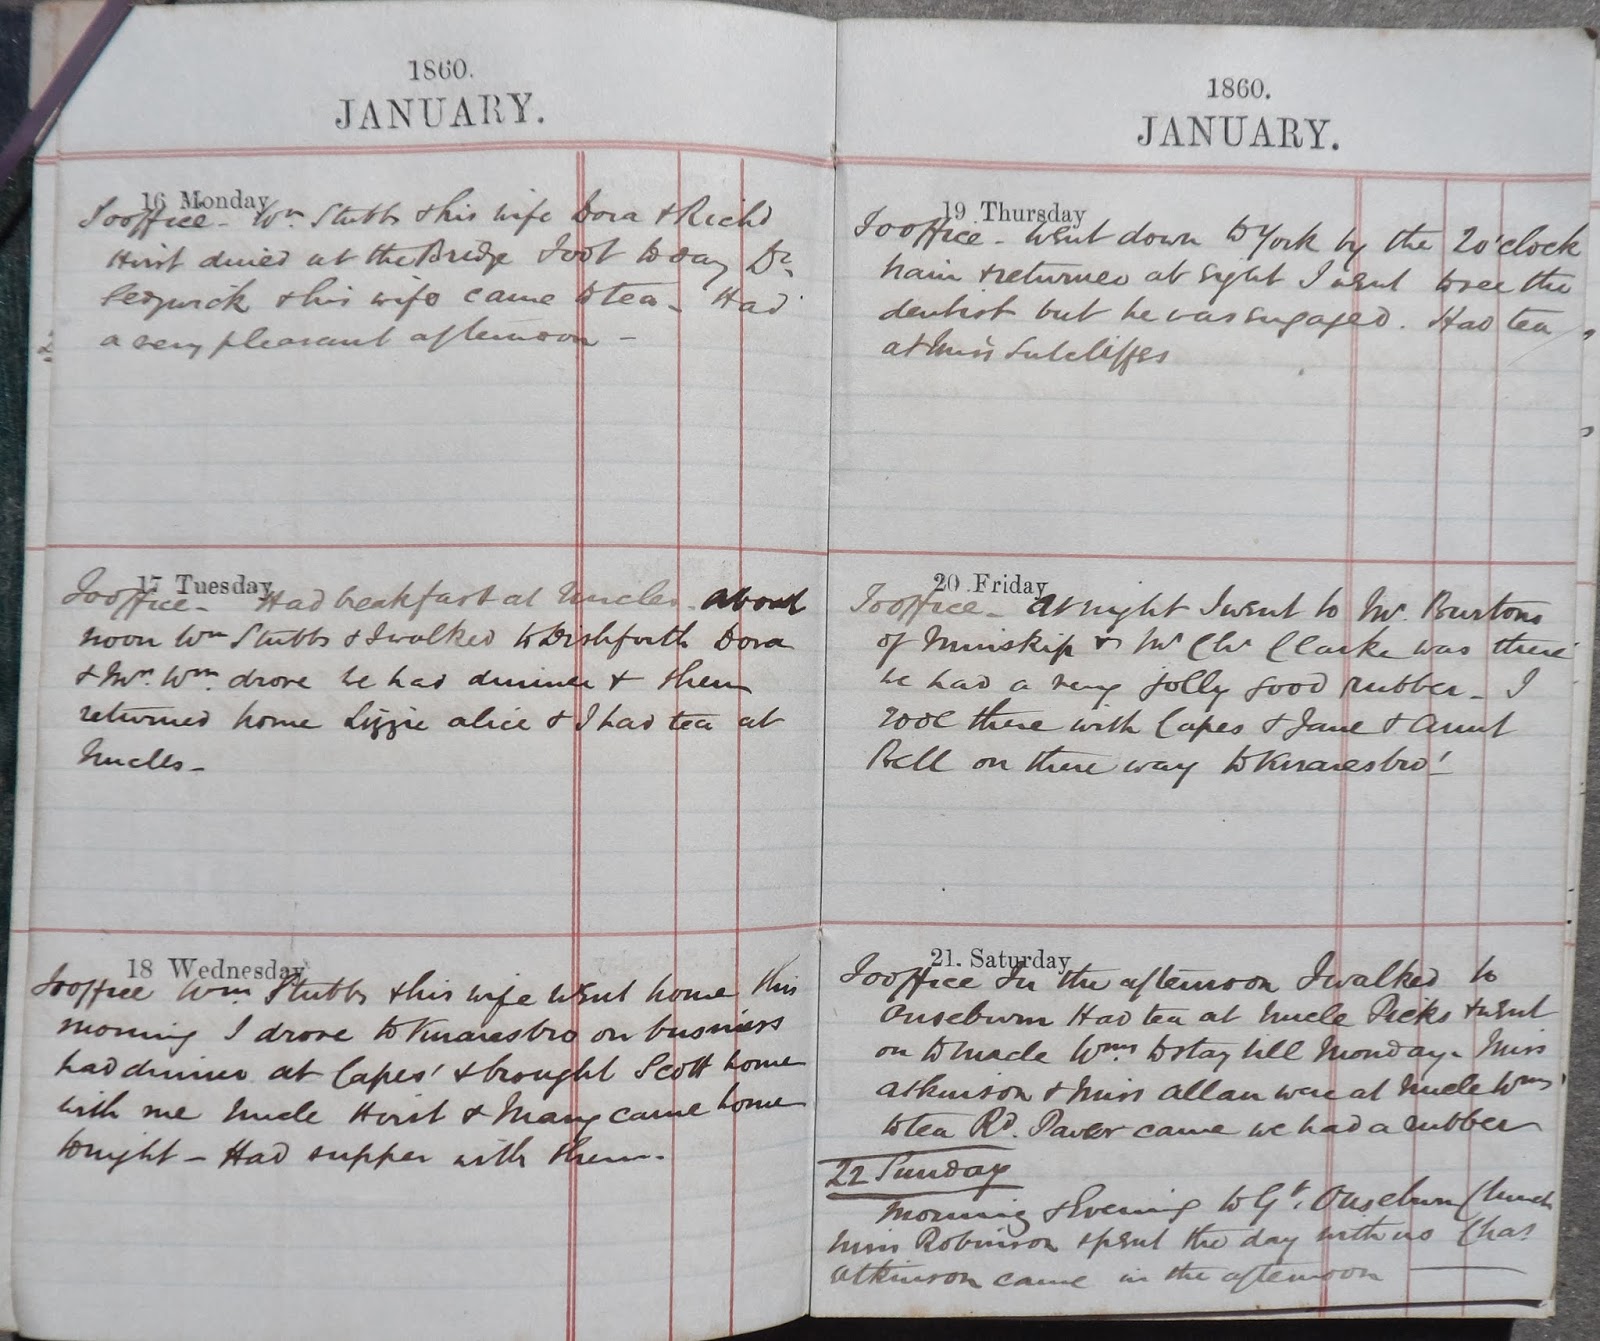 1860.
JANUARY.
16 Monday
To office - Wm Stubbs & his wife Dora & Richd
Hirst dined at the Bridge Foot to day Dr.
Sedgwick & his wife came to tea - Had
a very pleasant afternoon -
17 Tuesday
To office - Had breakfast at Uncles. about
noon Wm Stubbs & I walked to Dishforth Dora
& Mrs. Wm. drove we had dinner & then
returned home Lizzie Alice & I had tea at
Uncles -
18 Wednesday
To office Wm Stubbs & his wife went home this
morning I drove to Knaresbro on business
had dinner at Capes' & brought Scott home
with me Uncle Hirst & Mary came home
tonight - Had supper with them -
1860.
JANUARY.
19 Thursday
To office - Went down to York by the 2 o'clock
train & returned at eight I went to see the
dentist but he was engaged. Had tea
at Miss Sutcliffes
20 Friday
To office - At night I went to Mr. Burtons
of Minskip & Mr Chr Clarke was there
we had a very jolly good rubber - I
rode there with Capes & Jane & Aunt
Bell on there way to Knaresbro'
21. Saturday
To office In the afternoon I walked to
Ouseburn Had tea at Uncle Picks & went
on to Uncle Wms to stay till Monday - Miss
Atkinson & Miss Allan were at Uncle Wms'
to tea Rd. Paver came we had a rubber
22 Sunday
Morning & Evening to Gt. Ouseburn Church
Miss Robinson spent the day with us Chas
Atkinson came in the afternoon